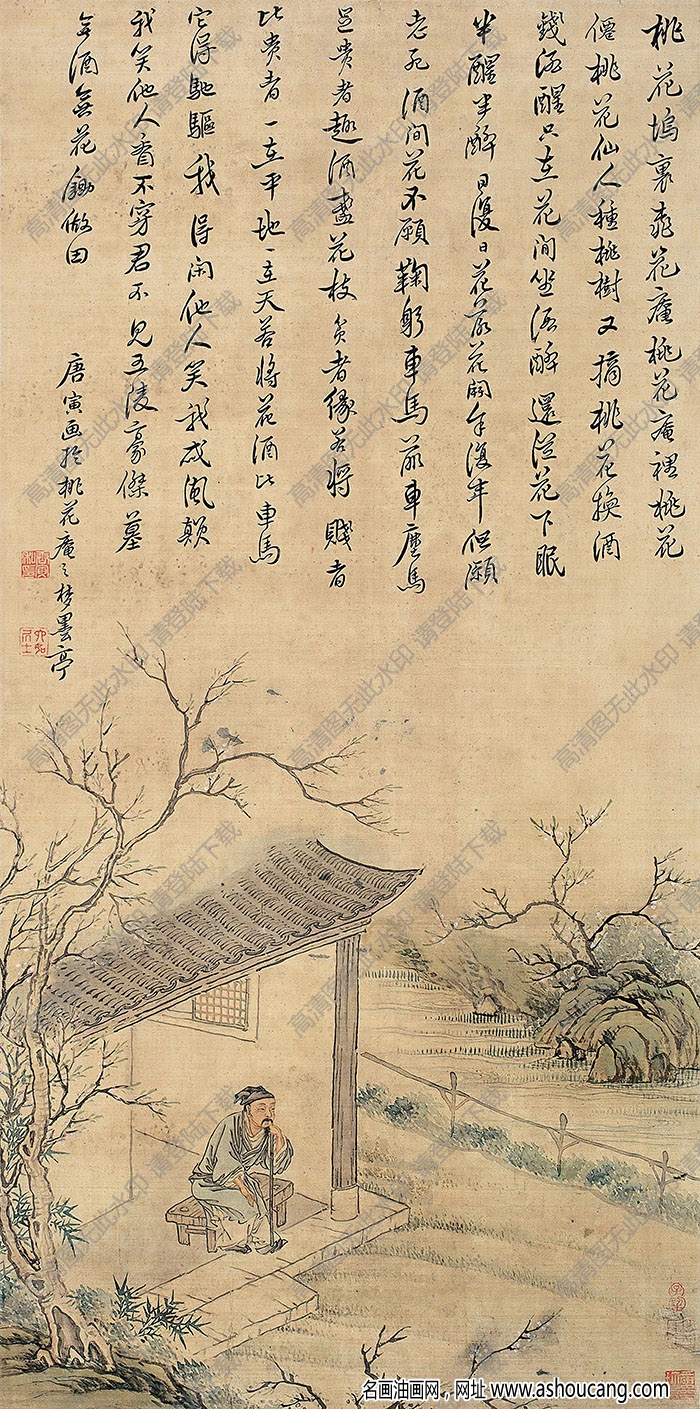 桃花塢裏桃花庵桃花庵裡桃花
僊桃花仙人種桃樹又摘桃花換酒
錢酒醒只在花間坐酒醉還從花下眠
半醒半醉日復日花落花開年復年但願
老死酒間花不願鞠躬車馬前車塵馬
足貴者趣酒盞花枝貧者緣若將賤者
比貴者一在平地一在天若將花酒比車馬
它得馳驅我得閑他人笑我忒風顛
我笑他人看不穿君不見五陵豪傑墓
無酒無花鋤做田
唐寅画於桃花庵之夢墨亭
唐寅私印
六如居士
高清图无此水印 请登陆下载
名画油画网,网址 www.ashoucang.com